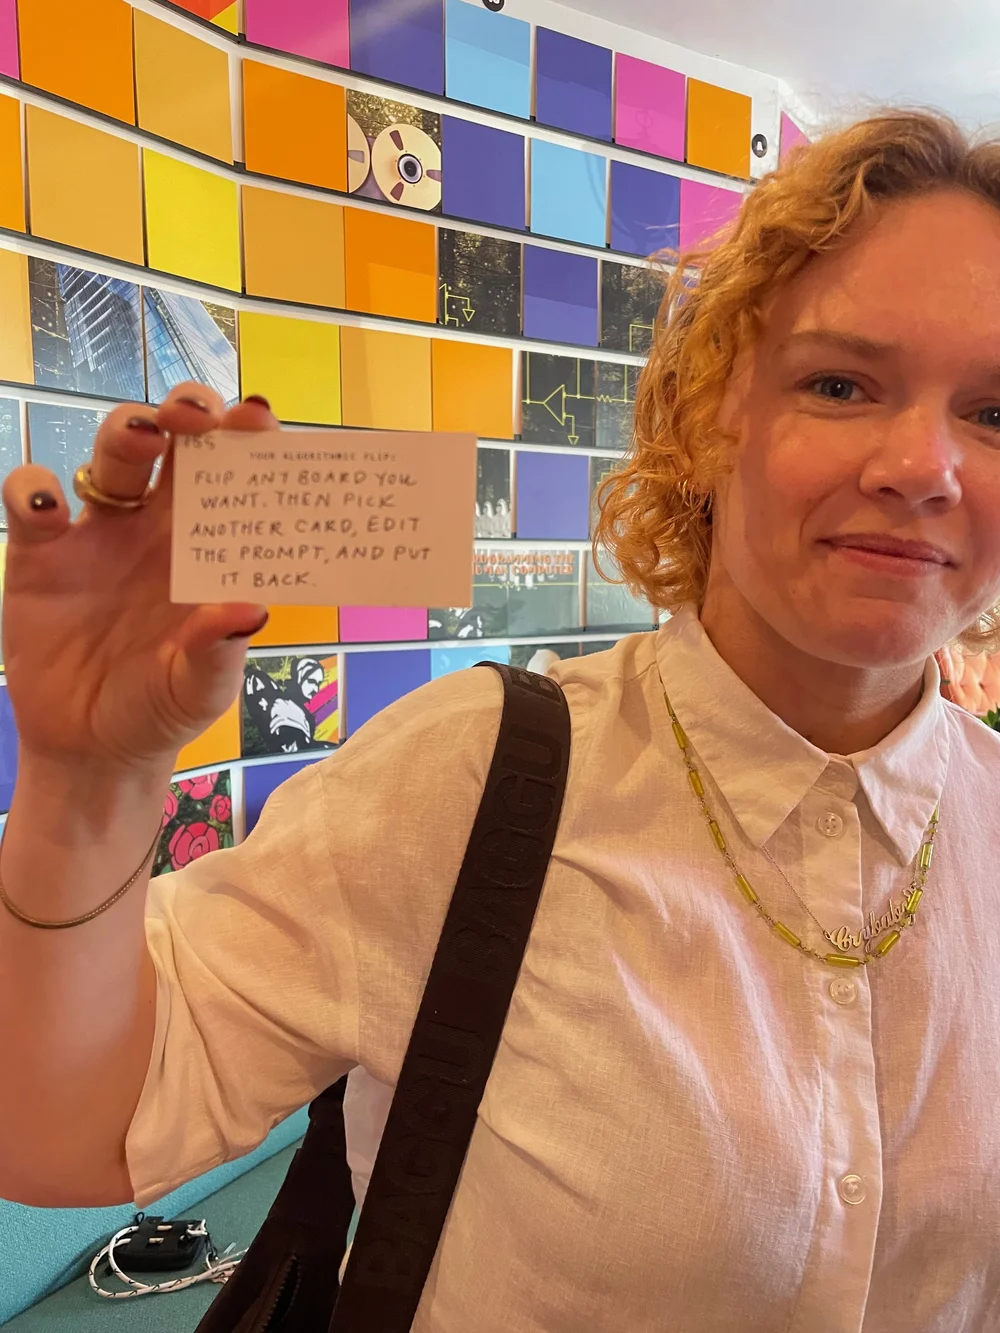 A
155
YOUR ALGORITHMIC FLIP:
FLIP ANY BOARD YOU
WANT. THEN PICK
ANOTHER CARD, EDIT
THE PROMPT, AND PUT
IT BACK.
BAGGU
BAGGU
BAGGU
Crybaby